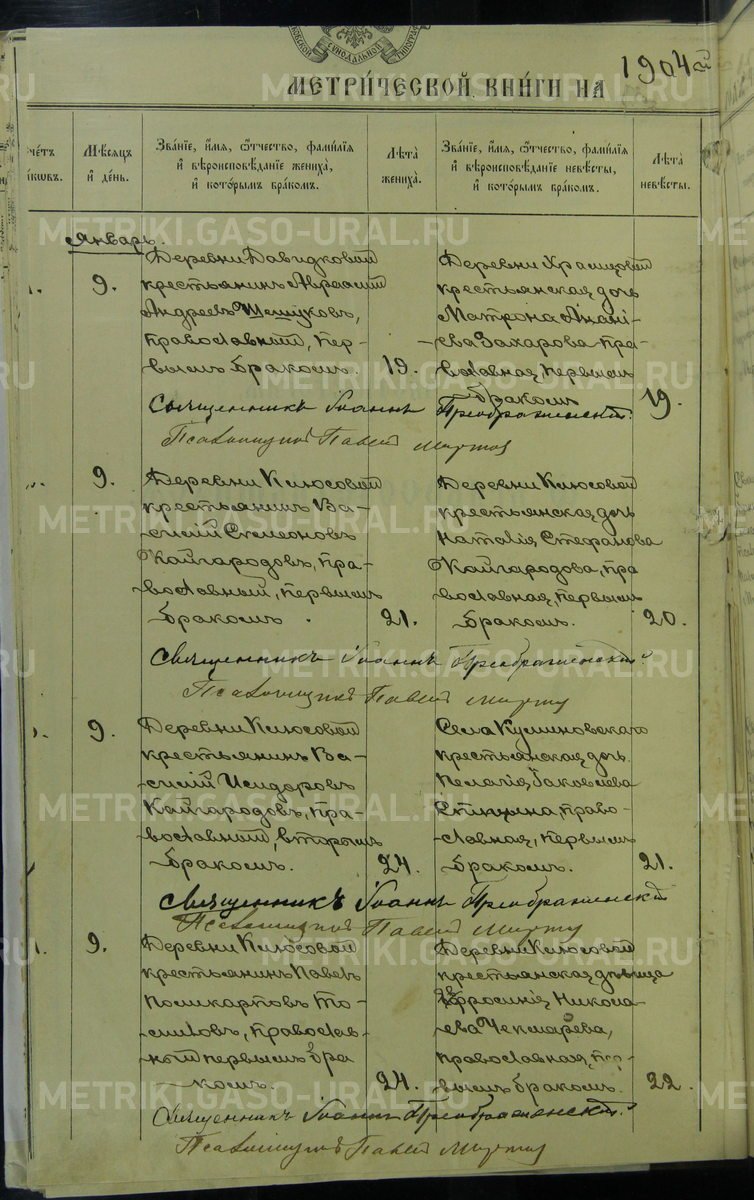 МЕТРИ́ЧЕСКОЙ КНИ́ГИ НА 1904 й
чéтъ
Мѣ́сяцъ
и҆ дéнь.
Звáнїе, и҆́мѧ, ѻ҆́тчество, фами́лїѧ
и҆ вѣроисповѣ́данїе женихà,
и҆ кото́рымъ брáкомъ.
Лѣ́та
женихà.
Звáнїе, и҆́мѧ, ѻ҆́тчество, фами́лїѧ
и҆ вѣроисповѣ́данїе невѣ́сты,
и҆ кото́рымъ брáкомъ.
Лѣ́та
невѣ́сты.
Январь.
9.
Деревни Давидковой
крестьянинъ Авраамій
Андреевъ Шешуковъ,
православный, пер-
вымъ бракомъ.
19.
Деревни Храмцовой
крестьянская дочь
Матрона Анані-
ева Захарова пра-
вославная, первымъ
бракомъ
19.
Священникъ Іоаннъ Преображенскій
Псаломщикъ Павелъ
9.
Деревни Клюсовой
крестьянинъ Ва-
силій Симеоновъ
Кайгородовъ, пра-
вославный, первымъ
бракомъ.
21.
Деревни Клюсовой
крестьянская дочь
Наталія Стефанова
Кайгородова, пра
вославная, первымъ
бракомъ.
20.
Священникъ Іоаннъ Преображенскій
Псаломщикъ Павелъ
9.
Деревни Клюсовой
крестьянинъ Ва-
силій Исидоровъ
Кайгородовъ, пра-
вославный, вторымъ
бракомъ.
24.
Села
крестьянская дочь
Пелагія Іаковлева
право-
славная, первымъ
бракомъ.
21.
Священникъ Іоаннъ Преображенскій
Псаломщикъ Павелъ
9.
Деревни Клюсовой
крестьянинъ Павелъ
Поликарповъ То-
миловъ, православ-
ный первымъ бра
комъ.
24.
Деревни Клюсовой
крестьянская дѣвица
Евфросинія Никола-
ева Чекмарева,
православная, пер-
вымъ бракомъ.
22.
Священникъ Іоаннъ Преображенскій
Псаломщикъ Павелъ
METRIKI.GASO-URAL.RU